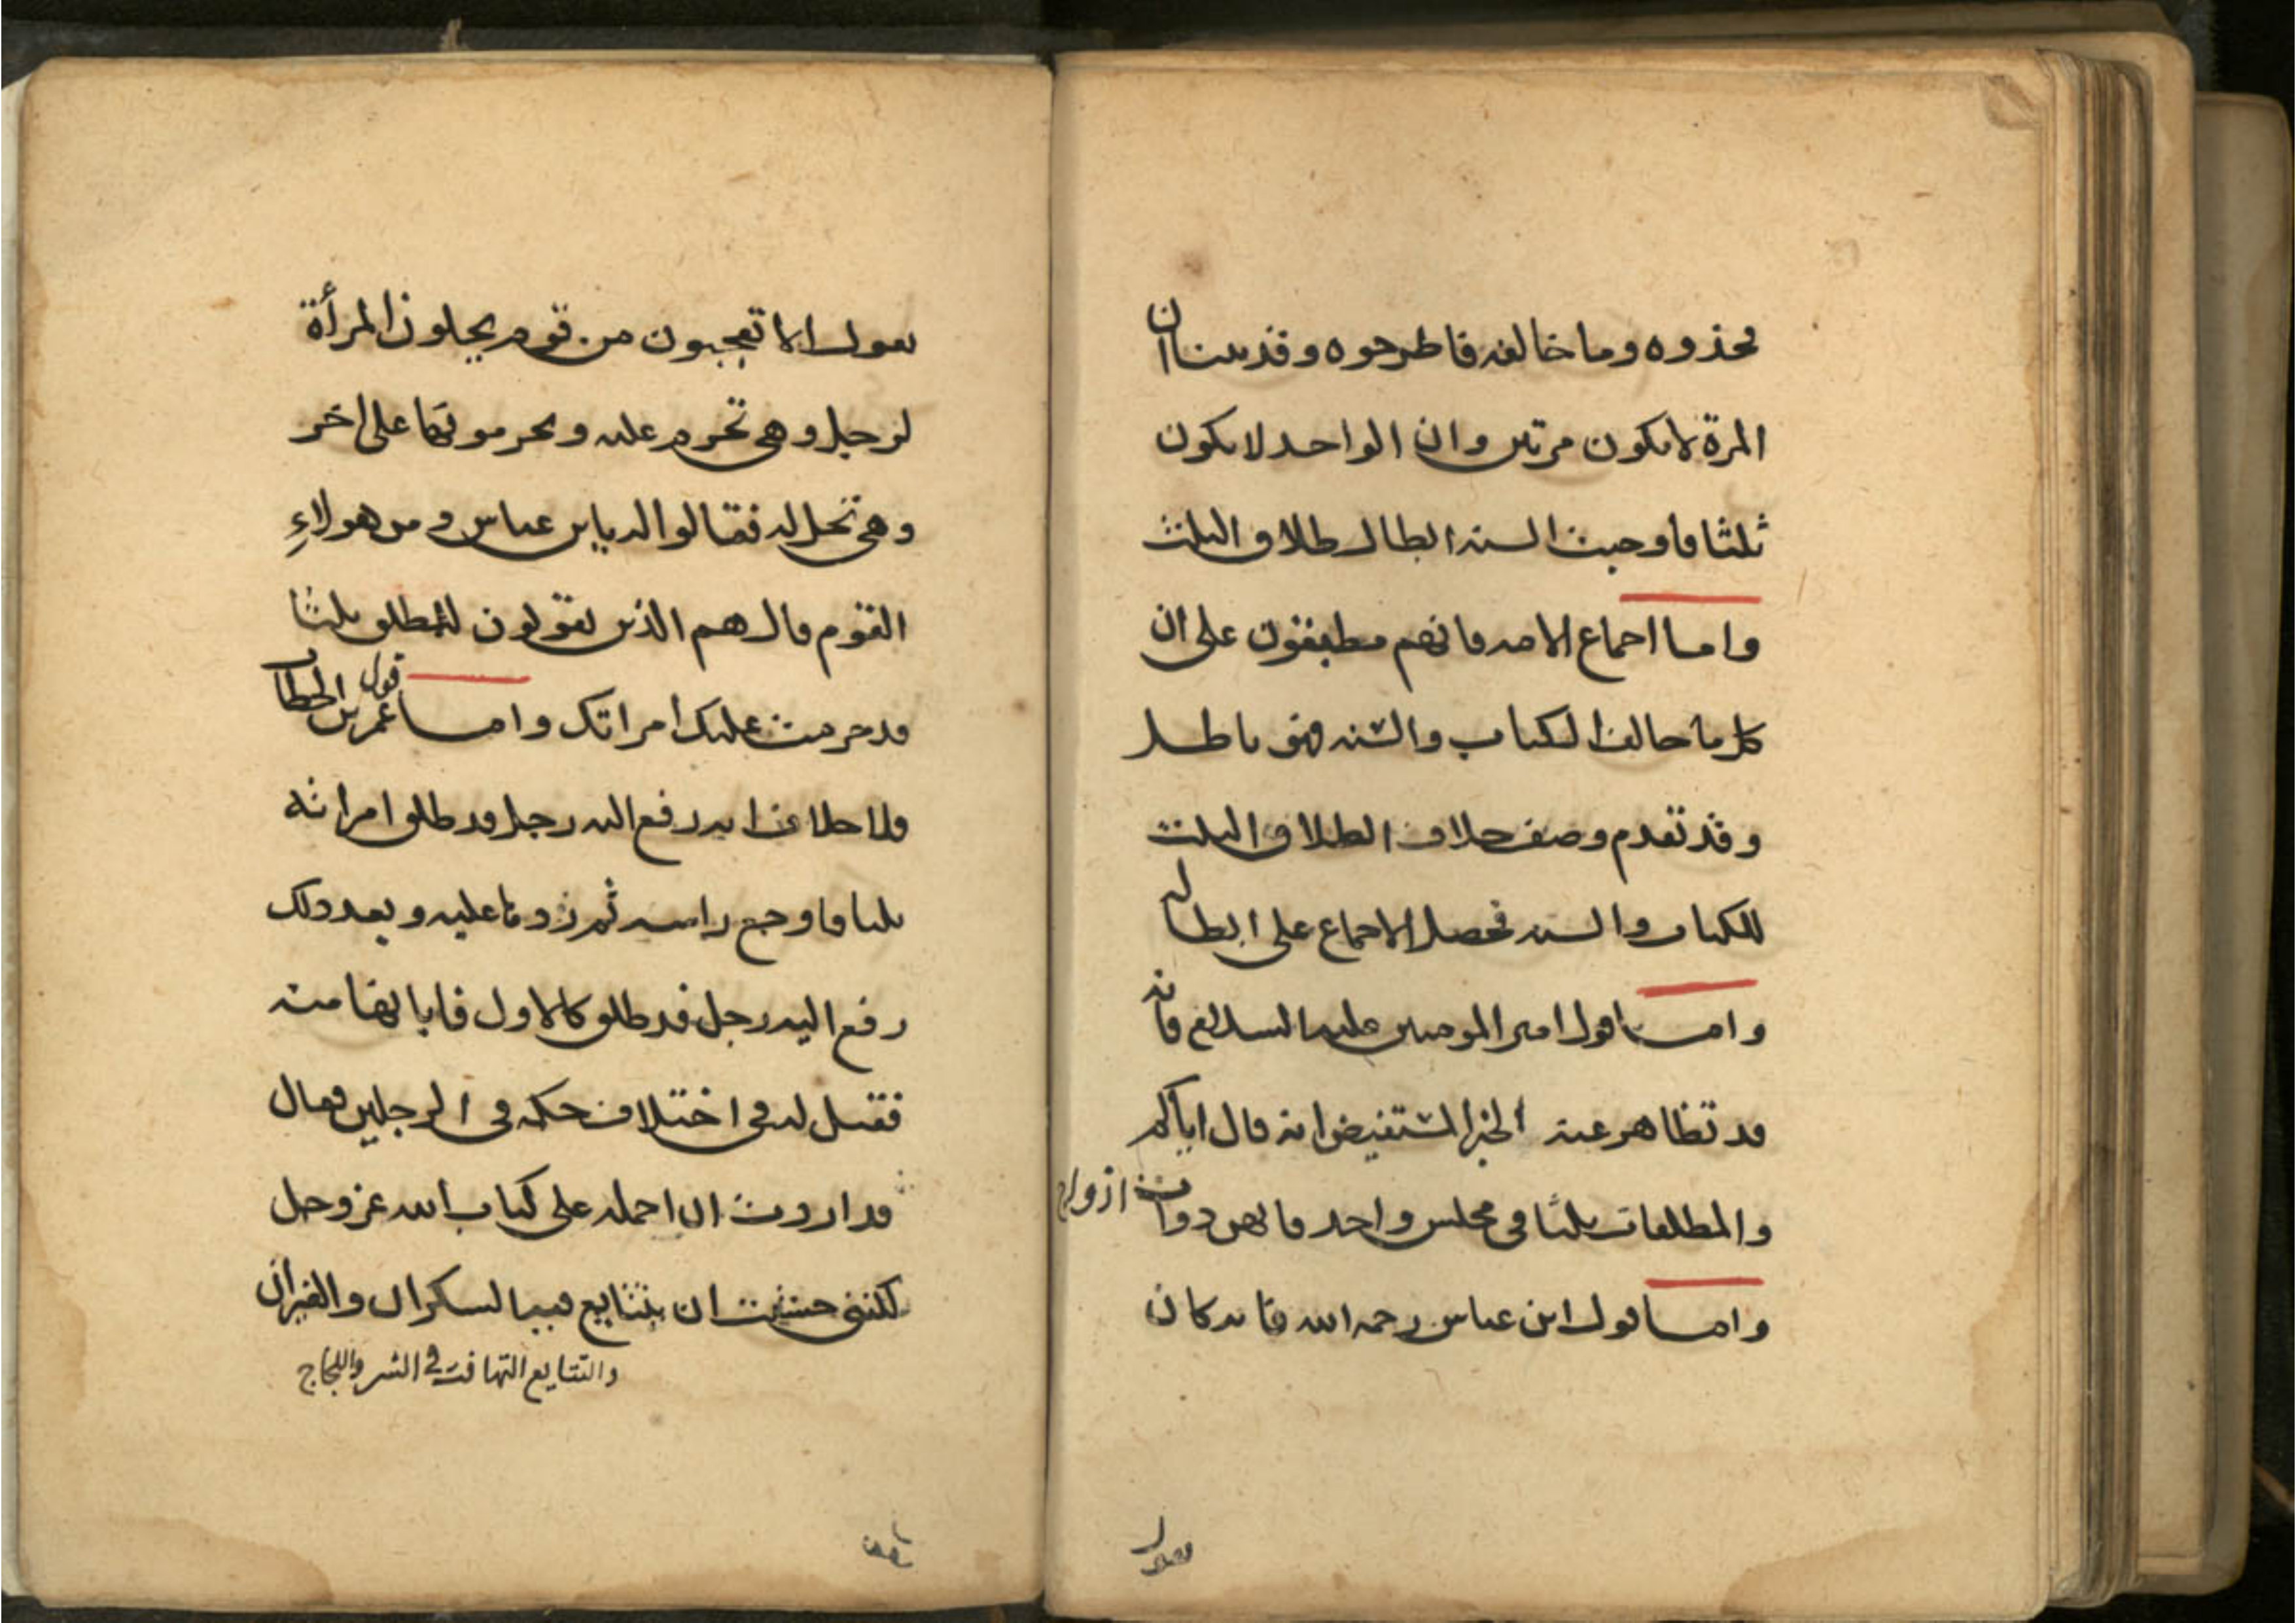 فخذوه وما خالفه فاطرحوه وقد بينا ان
المرة لا يكون مرتين وان الواحد لا يكون
ثلثا فاوجبت السنه ابطال طلاق الثلث
واما اجماع الامه فانهم مطبقون على ان
كل ما خالف الكتاب والسنه فهو باطل
وقد تقدم وصف خلاف الطلاق الثلث
للكتاب والسنه فحصل الاجماع على ابطاله
واما قول امير المومنين عليه السلام فانه
قد تظاهر عنه الخبر المستفيض انه قال اياكم
والمطلقات ثلثا في مجلس واحد فانهن ذوات ازواج
واما قول ابن عباس رحمه الله فانه كان
يقول
يقول الا تعجبون من قوم يحلون المرأة
لرجل وهي تحرم عليه ويحرمونها على اخر
وهي تحل له فقالوا له يابن عباس ومن هولاءِ
القوم قال هم الذين يقولون للمطلق ثلثا
قد حرمت عليك امراتك واما قول عمر بن الخطاب
فلا خلاف انه رفع اليه رجل قد طلق امراته
ثلثا فاوجع راسه ثم ردها عليه وبعد ذلك
رفع اليه رجل قد طلق كالاول فابانها منه
فقيل له في اختلاف حكمه في الرجلين فقال
قد اردت ان احمله على كتاب الله عز وجل
لكنني خشيت ان يتتايع فيه السكران والغيران
والتتايع التهافت في الشر واللجاج